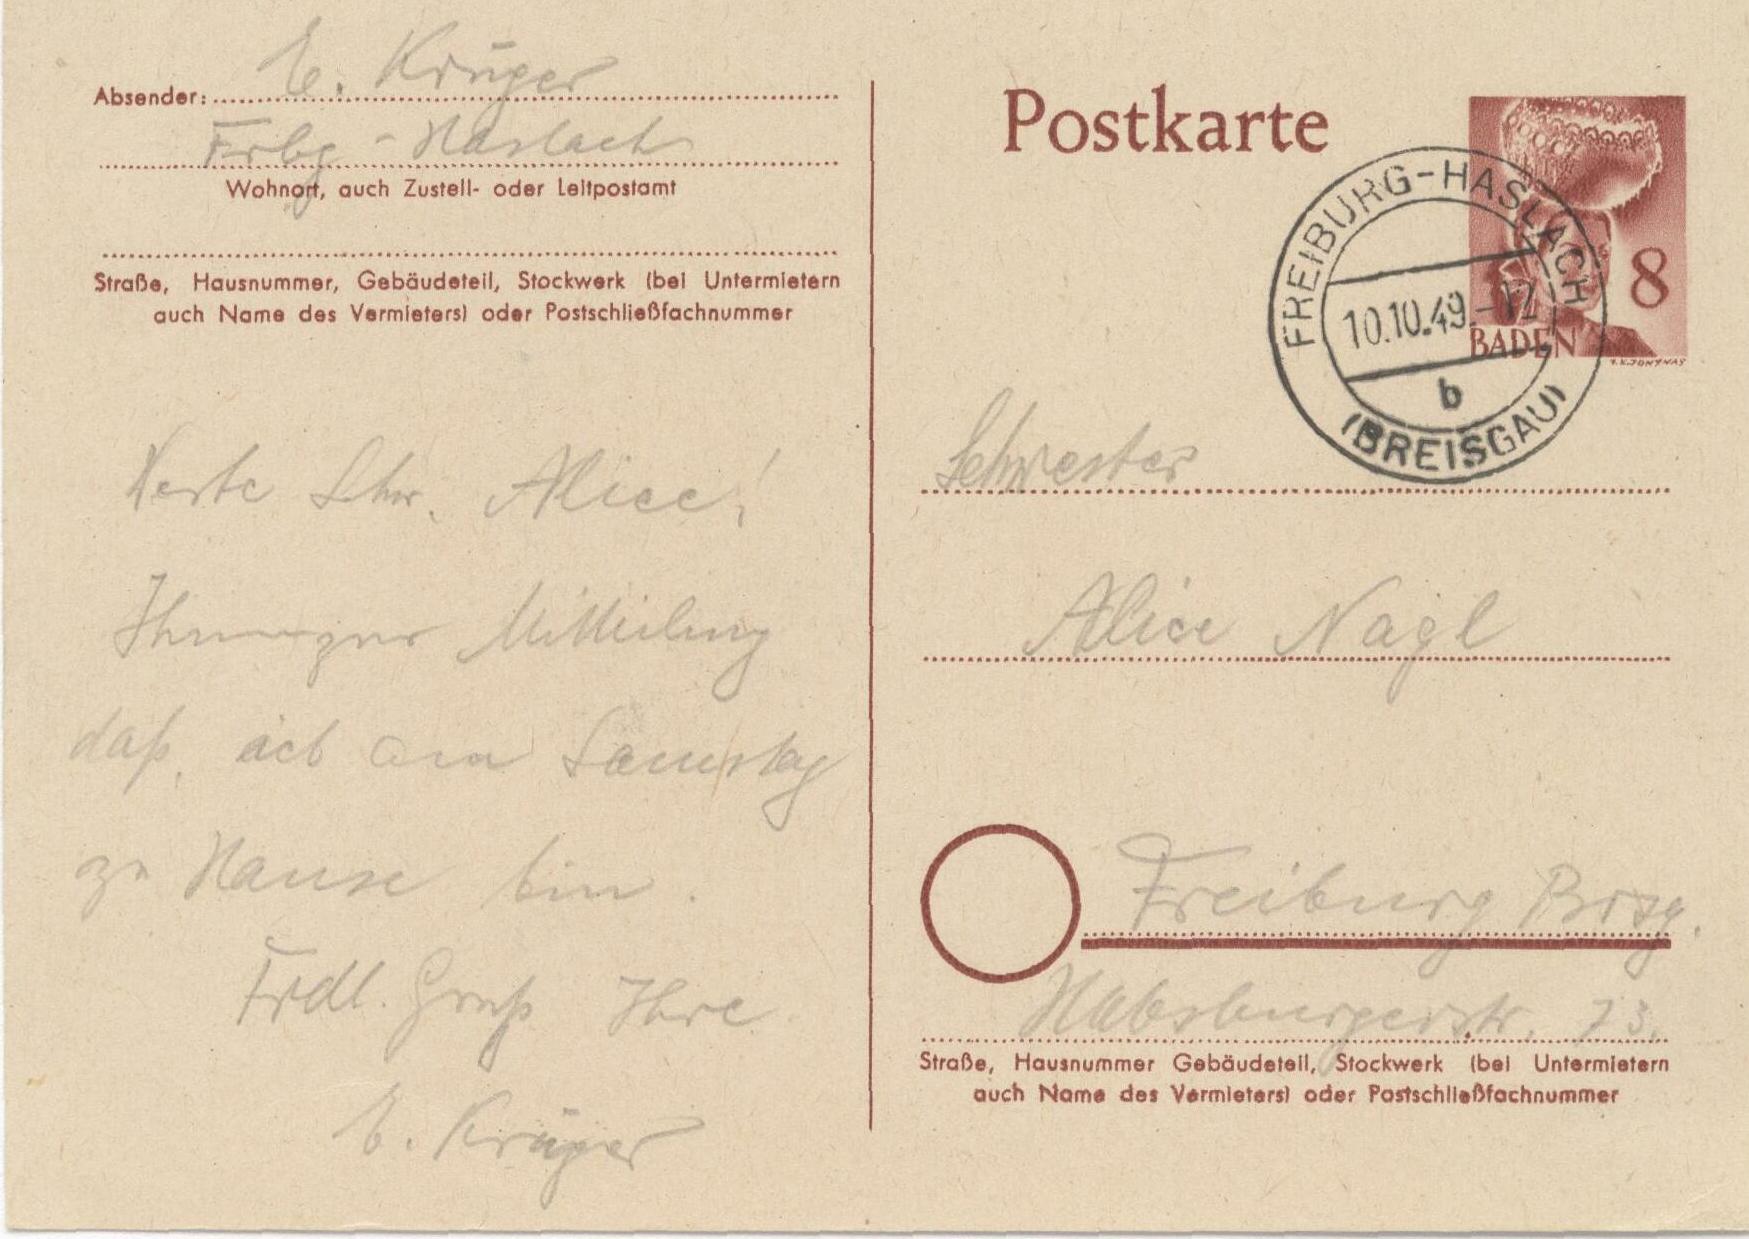 Absender: E. Krüger
Frbg - Haslach
Wohnort, auch Zustell- oder Leitpostamt
Straße, Hausnummer, Gebäudeteil, Stockwerk (bei Untermietern
auch Name des Vermieters) oder Postschließfachnummer
Werte Schw. Alice!
Ihnen zur Mitteilung
daß, ich am Samstag
zu Hause bin.
Frdl. Gruß Ihre
E. Krüger
Postkarte
8
BADEN
V.K.JONYNAS
FREIBURG-HASLACH
10.10.49.-12
b
(BREISGAU)
Schwester
Alice Nagl
Freiburg Brsg.
Habsburgerstr. 73.
Straße, Hausnummer Gebäudeteil, Stockwerk (bei Untermietern
auch Name des Vermieters) oder Postschließfachnummer